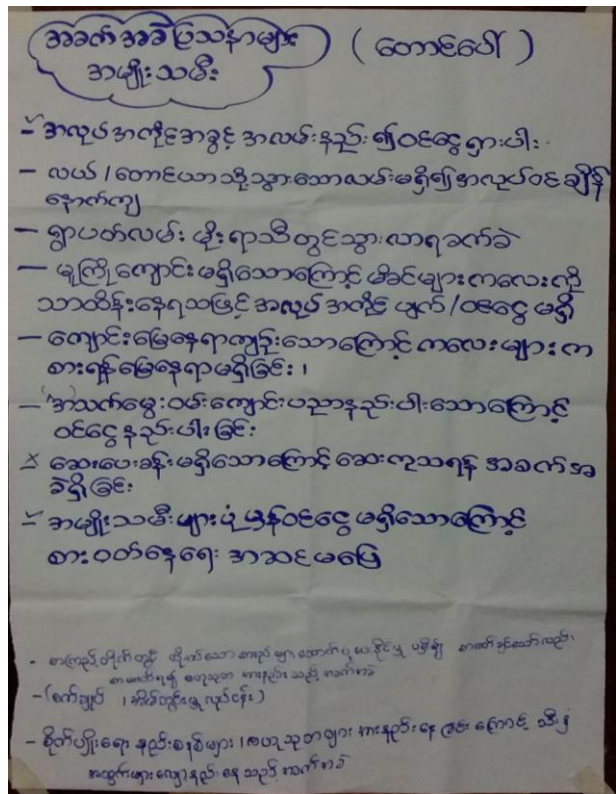 အခက်အခဲပြဿနာများ (တောင်ပေါ်)
အမျိုးသမီး
- အလုပ်အကိုင်အခွင့် အလမ်းနည်း၍ဝင်ငွေရှားပါး
- လယ်/တောင်ယာသို့သွားသောလမ်းမရှိ၍အလုပ်ဝင်ချိန်
နောက်ကျ
- ရွာပတ်လမ်း မိုးရာသီတွင်သွားလာရခက်ခဲ
- မူကြိုကျောင်းမရှိသောကြောင့် မိခင်များကလေးကို
သာထိန်းနေရသဖြင့် အလုပ်အကိုင် ပျက်/ဝင်ငွေ မရှိ
- ကျောင်းမြေနေရာကျဉ်းသောကြောင့် ကလေးများက
စားရန်မြေနေရာမရှိခြင်း၊
- အသက်မွေးဝမ်းကျောင်းပညာနည်းပါးသောကြောင့်
ဝင်ငွေနည်းပါးခြင်း
x ဆေးပေးခန်းမရှိသောကြောင့် ဆေးကုသရန် အခက်အ
ခဲရှိခြင်း
- အမျိုးသမီးများပုံမှန်ဝင်ငွေမရှိသောကြောင့်
စားဝတ်နေရေး အဆင်မပြေ
- စာကြည့်တိုက်တွင်
ဗဟုသုတ အားနည်းသည့် အခက်အခဲ
- (စက်ချုပ် ၊ အိမ်တွင်းမှု လုပ်ငန်း)
- စိုက်ပျိုးရေး နည်းစနစ်များ ၊ ဗဟုသုတများ အားနည်းနေခြင်းကြောင့် သီးနှံ
အထွက်များလျော့နည်းနေသည့် အခက်အခဲ